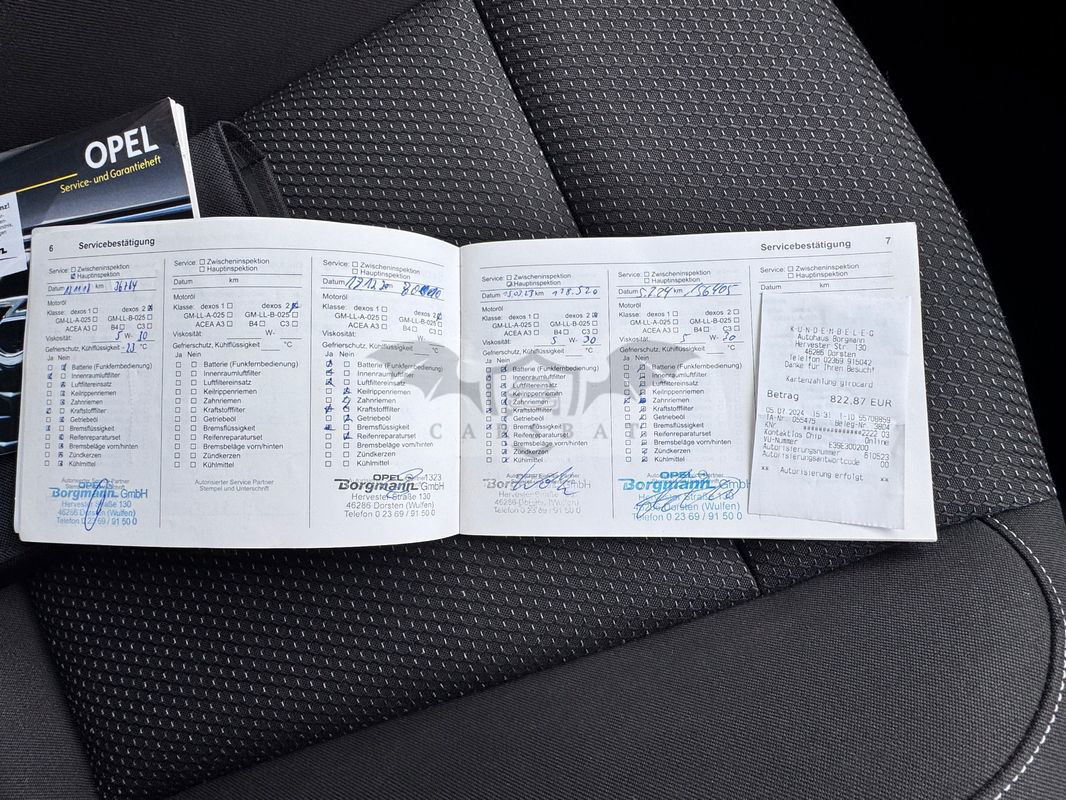 OPEL
Service- und Garantieheft
6 Servicebestätigung
Service: Zwischeninspektion
Hauptinspektion
Datum km 36784
Motoröl
Klasse: dexos 1 dexos 2
GM-LL-A-025 GM-LL-B-025
ACEA A3 B4 C3
Viskosität: 5 W- 30
Gefrierschutz, Kühlflüssigkeit °C
Ja Nein
Batterie (Funkfernbedienung)
Innenraumluftfilter
Luftfiltereinsatz
Keilrippenriemen
Zahnriemen
Kraftstofffilter
Getriebeöl
Bremsflüssigkeit
Reifenreparaturset
Bremsbeläge vorn/hinten
Zündkerzen
Kühlmittel
Borgmann GmbH
Hervester Straße 130
46286 Dorsten (Wulfen)
Telefon 0 23 69 / 91 50 0
Service: Zwischeninspektion
Hauptinspektion
Datum km
Motoröl
Klasse: dexos 1 dexos 2
GM-LL-A-025 GM-LL-B-025
ACEA A3 B4 C3
Viskosität: W-
Gefrierschutz, Kühlflüssigkeit °C
Ja Nein
Batterie (Funkfernbedienung)
Innenraumluftfilter
Luftfiltereinsatz
Keilrippenriemen
Zahnriemen
Kraftstofffilter
Getriebeöl
Bremsflüssigkeit
Reifenreparaturset
Bremsbeläge vorn/hinten
Zündkerzen
Kühlmittel
Autorisierter Service Partner
Stempel und Unterschrift
Service: Zwischeninspektion
Hauptinspektion
Datum
Motoröl
Klasse: dexos 1 dexos 2
GM-LL-A-025 GM-LL-B-025
ACEA A3 B4 C3
Viskosität: W-
Gefrierschutz, Kühlflüssigkeit °C
Ja Nein
Batterie (Funkfernbedienung)
Innenraumluftfilter
Luftfiltereinsatz
Keilrippenriemen
Zahnriemen
Kraftstofffilter
Getriebeöl
Bremsflüssigkeit
Reifenreparaturset
Bremsbeläge vorn/hinten
Zündkerzen
Kühlmittel
OPEL
Borgmann GmbH
Hervester Straße 130
46286 Dorsten (Wulfen)
Telefon 0 23 69 / 91 50 0
Servicebestätigung 7
Service: Zwischeninspektion
Hauptinspektion
Datum km 128.520
Motoröl
Klasse: dexos 1 dexos 2
GM-LL-A-025 GM-LL-B-025
ACEA A3 B4 C3
Viskosität: 5 W- 30
Gefrierschutz, Kühlflüssigkeit °C
Ja Nein
Batterie (Funkfernbedienung)
Innenraumluftfilter
Luftfiltereinsatz
Keilrippenriemen
Zahnriemen
Kraftstofffilter
Getriebeöl
Bremsflüssigkeit
Reifenreparaturset
Bremsbeläge vorn/hinten
Zündkerzen
Kühlmittel
Hervester Straße 130
46286 Dorsten (Wulfen)
Telefon 0 23 69 / 91 50 0
Service: Zwischeninspektion
Hauptinspektion
Datum 5.7.24 km 156405
Motoröl
Klasse: dexos 1 dexos 2
GM-LL-A-025 GM-LL-B-025
ACEA A3 B4 C3
Viskosität: 5 W- 30
Gefrierschutz, Kühlflüssigkeit °C
Ja Nein
Batterie (Funkfernbedienung)
Innenraumluftfilter
Luftfiltereinsatz
Keilrippenriemen
Zahnriemen
Kraftstofffilter
Getriebeöl
Bremsflüssigkeit
Reifenreparaturset
Bremsbeläge vorn/hinten
Zündkerzen
Kühlmittel
OPEL
Borgmann GmbH
Hervester Straße 130
46286 Dorsten (Wulfen)
Telefon 0 23 69 / 91 50 0
Service: Zwischeninspektion
Hauptinspektion
Datum km
KUNDENBELEG
Autohaus Borgmann
Hervester Str 130
46286 Dorsten
Telefon 02369 915042
Danke für Ihren Besuch!
Kartenzahlung girocard
Betrag 822,87 EUR
05.07.2024 15:31
TA-Nr. 055475 Beleg-Nr. 3804
KNr 2222 03
Kontaktlos Chip Online
VU-Nummer
Autorisierungsnummer 810523
Autorisierungsantwortcode 00
** Autorisierung erfolgt **
CAROBAT